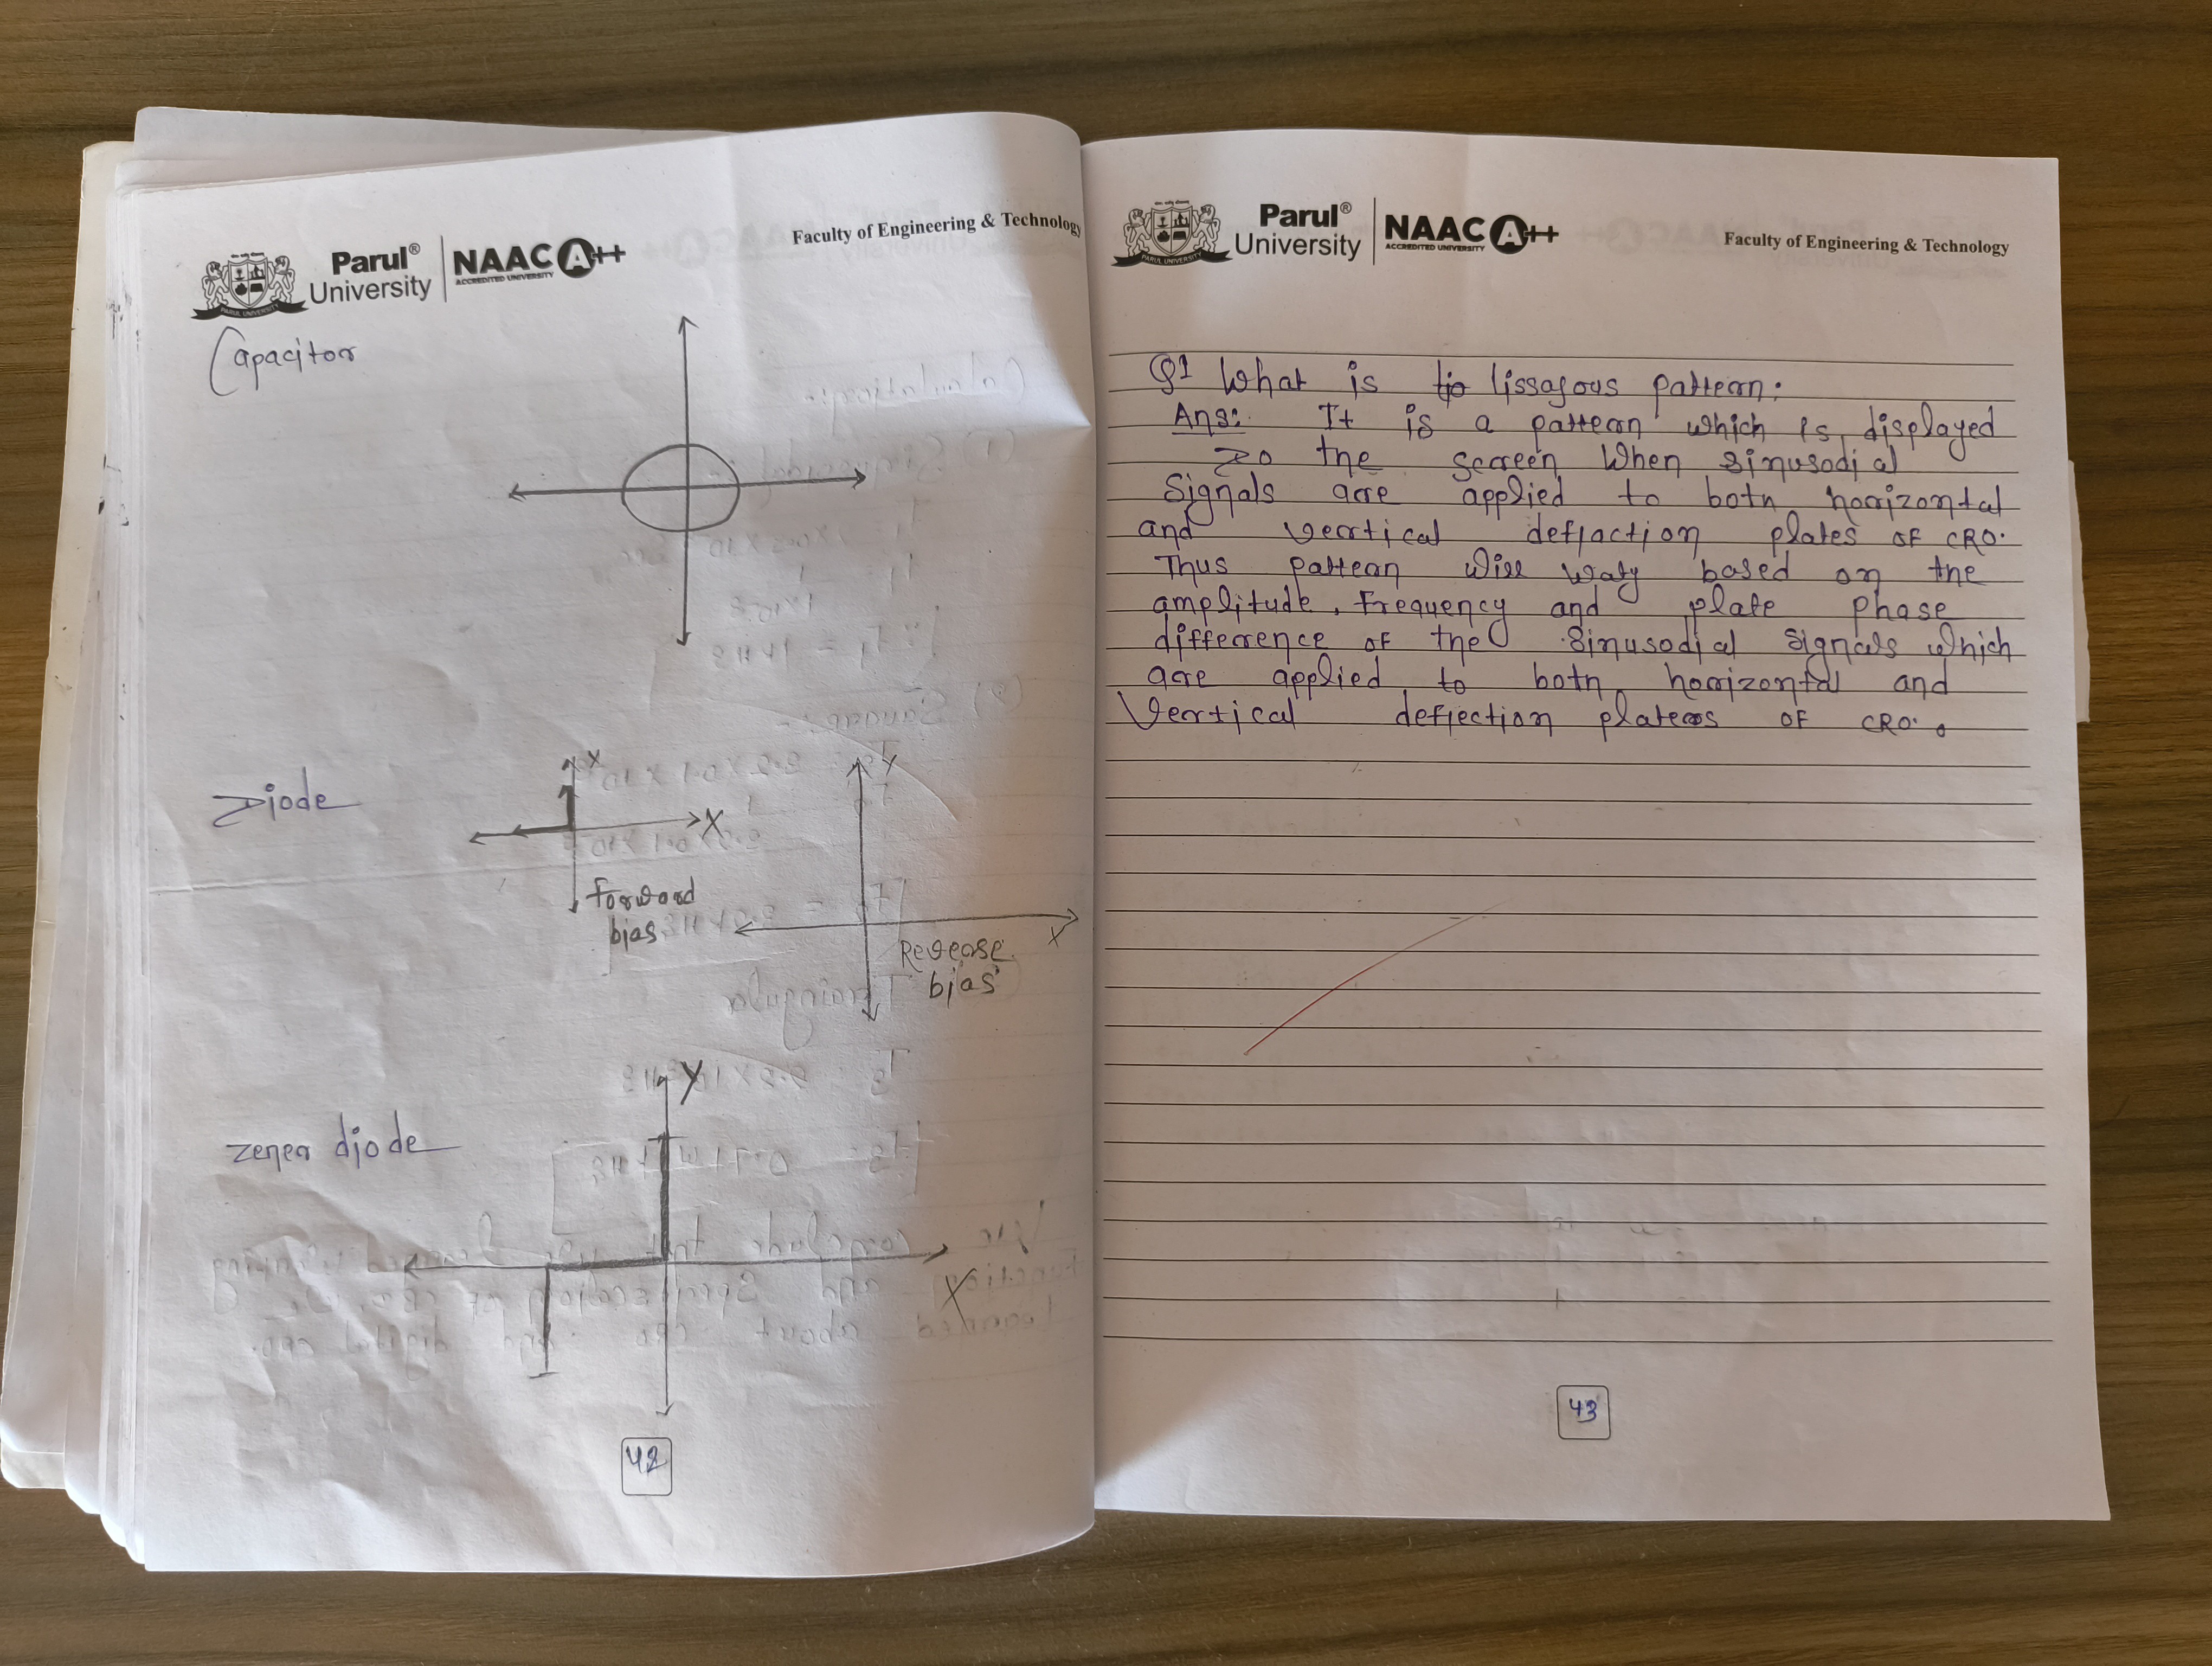 Parul® University
NAAC A++
ACCREDITED UNIVERSITY
Faculty of Engineering & Technology
PARUL UNIVERSITY
Capacitor
Diode
X
X
forward
bias
Y
X
Reverse
bias
Zener diode
Y
X
42
Parul® University
NAAC A++
ACCREDITED UNIVERSITY
Faculty of Engineering & Technology
PARUL UNIVERSITY
Q1 What is lissajous pattern:
Ans: It is a pattern which is displayed
the screen when sinusodial
signals are applied to both horizontal
and vertical deflaction plates of CRO.
Thus pattern will waty based on the
amplitude, frequency and plate phase
difference of the sinusodial signals which
are applied to both horizontal and
vertical deflection plates of CRO.
43